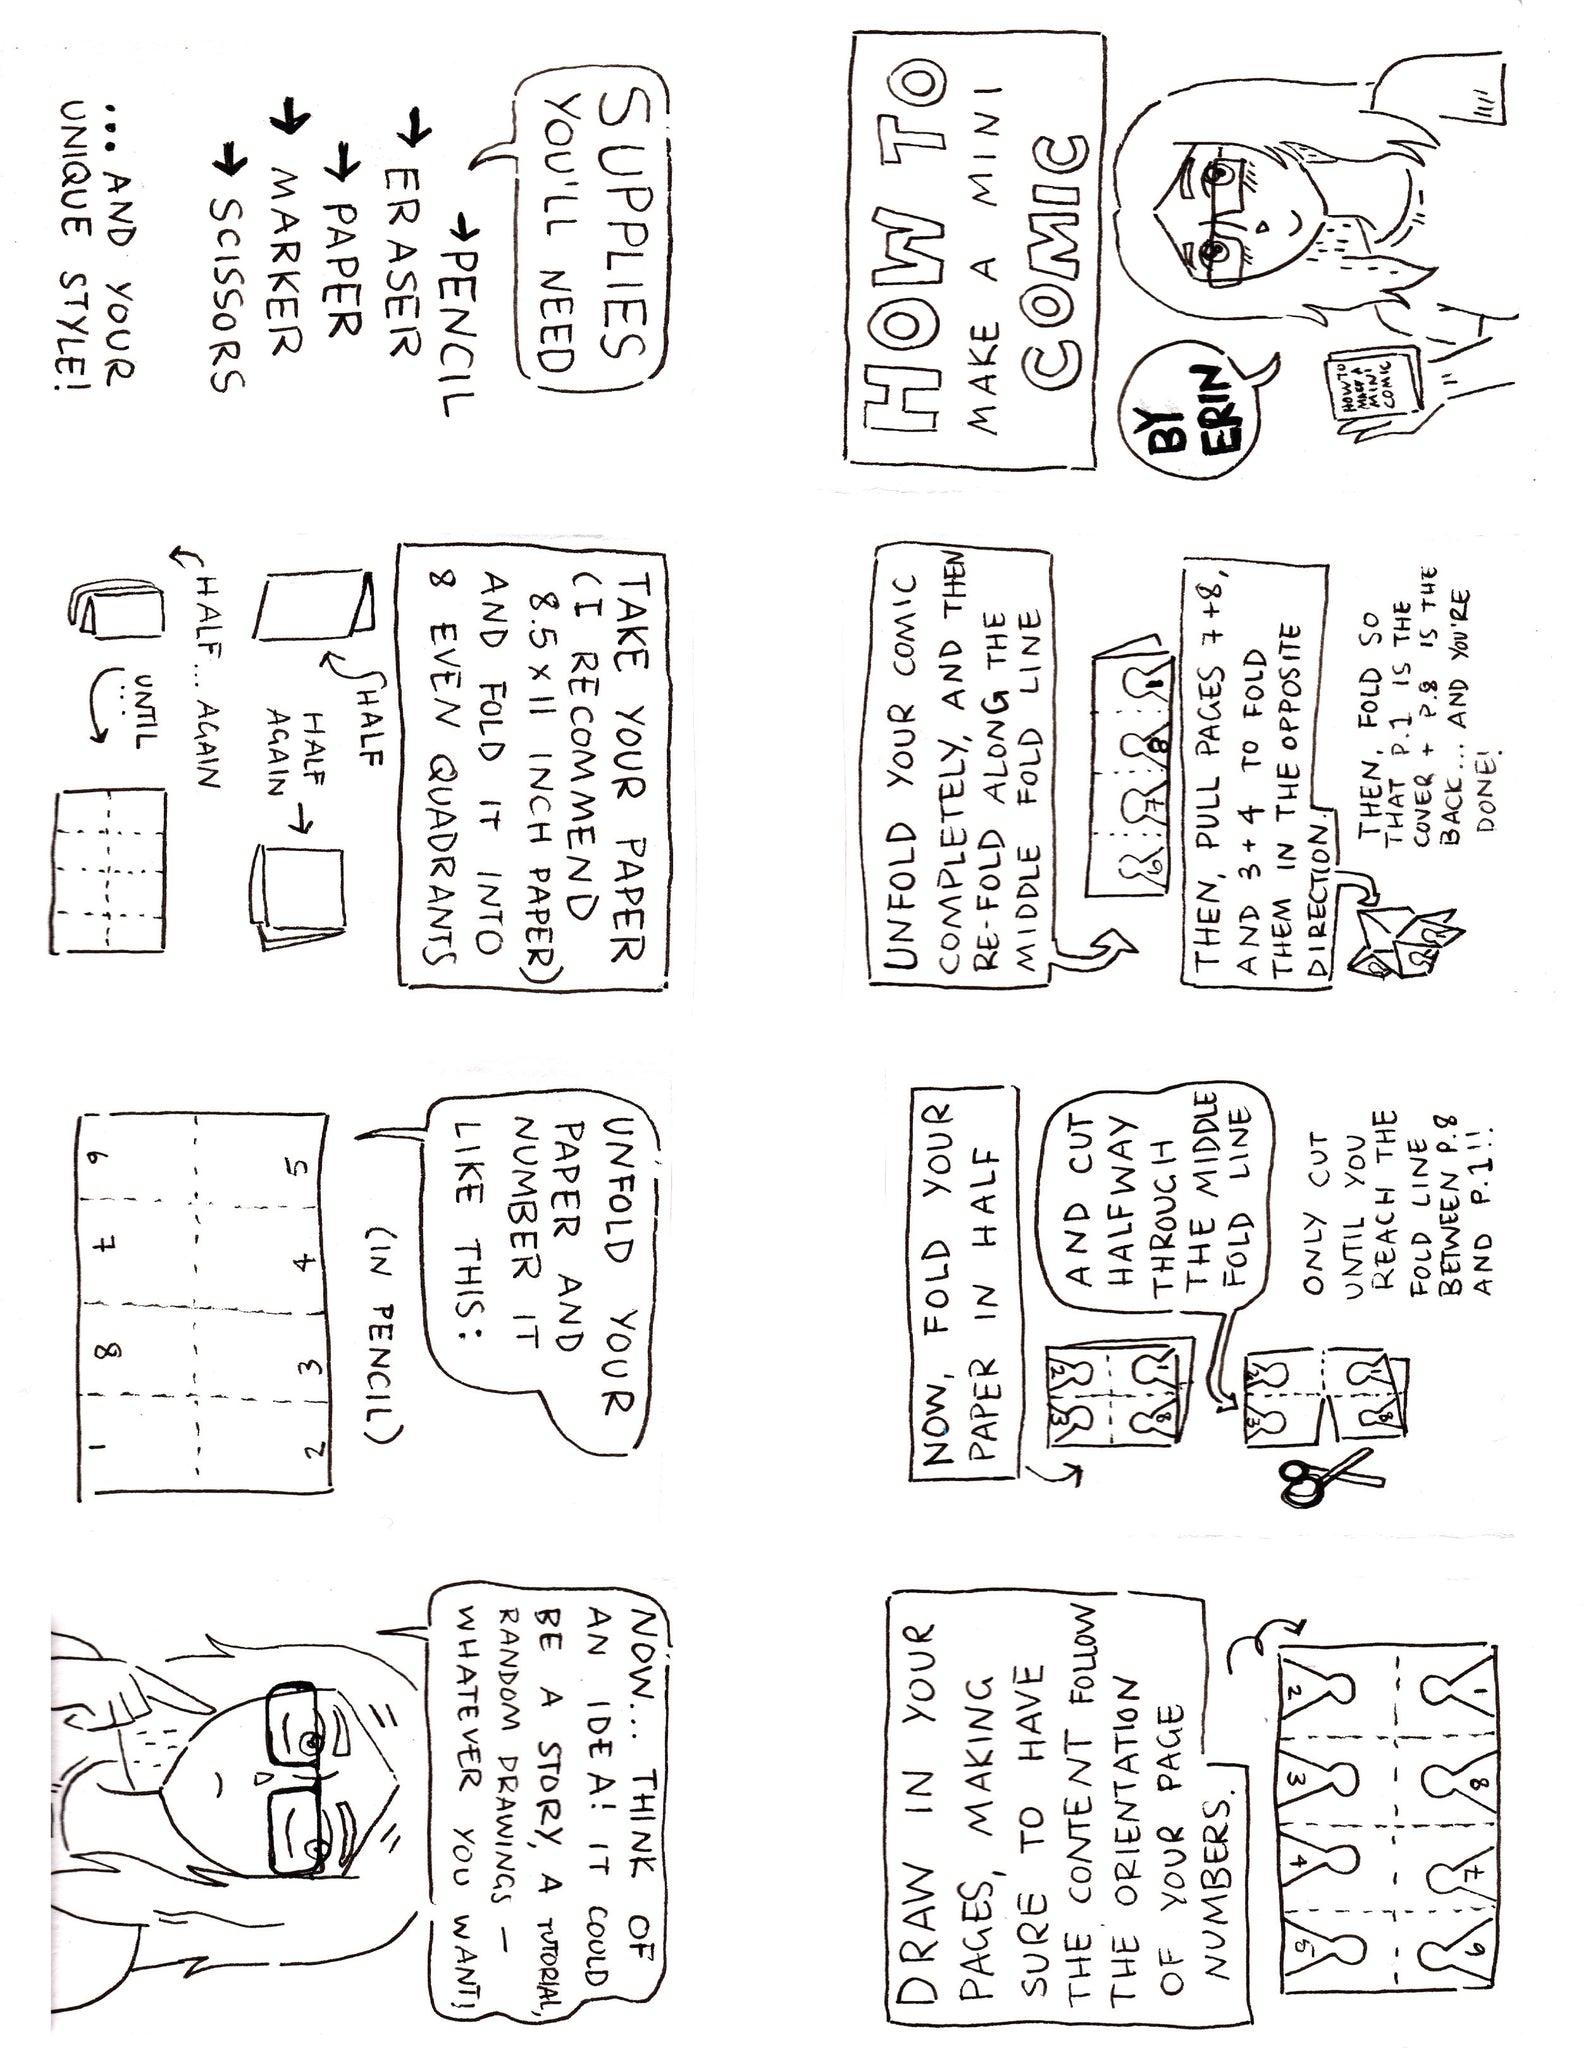 HOW TO
MAKE A MINI
COMIC
BY
ERIN
HOW TO
MAKE A
MINI
COMIC
SUPPLIES
YOU'LL NEED
→ PENCIL
→ ERASER
→ PAPER
→ MARKER
→ SCISSORS
...AND YOUR
UNIQUE STYLE!
TAKE YOUR PAPER
(I RECOMMEND
8.5 x 11 INCH PAPER)
AND FOLD IT INTO
8 EVEN QUADRANTS
HALF
HALF
AGAIN
HALF... AGAIN
UNTIL
...
UNFOLD YOUR
PAPER AND
NUMBER IT
LIKE THIS:
(IN PENCIL)
5 4 3 2
6 7 8 1
NOW... THINK OF
AN IDEA! IT COULD
BE A STORY, A TUTORIAL,
RANDOM DRAWINGS –
WHATEVER YOU WANT!
DRAW IN YOUR
PAGES, MAKING
SURE TO HAVE
THE CONTENT FOLLOW
THE ORIENTATION
OF YOUR PAGE
NUMBERS.
5 4 3 2
6 7 8 1
NOW, FOLD YOUR
PAPER IN HALF
3 2
8 1
AND CUT
HALFWAY
THROUGH
THE MIDDLE
FOLD LINE
3 2
8 1
ONLY CUT
UNTIL YOU
REACH THE
FOLD LINE
BETWEEN P.8
AND P.1!!
UNFOLD YOUR COMIC
COMPLETELY, AND THEN
RE-FOLD ALONG THE
MIDDLE FOLD LINE
6 7 8 1
THEN, PULL PAGES 7+8,
AND 3+4 TO FOLD
THEM IN THE OPPOSITE
DIRECTION.
THEN, FOLD SO
THAT P.1 IS THE
COVER + P.8 IS THE
BACK... AND YOU'RE
DONE!